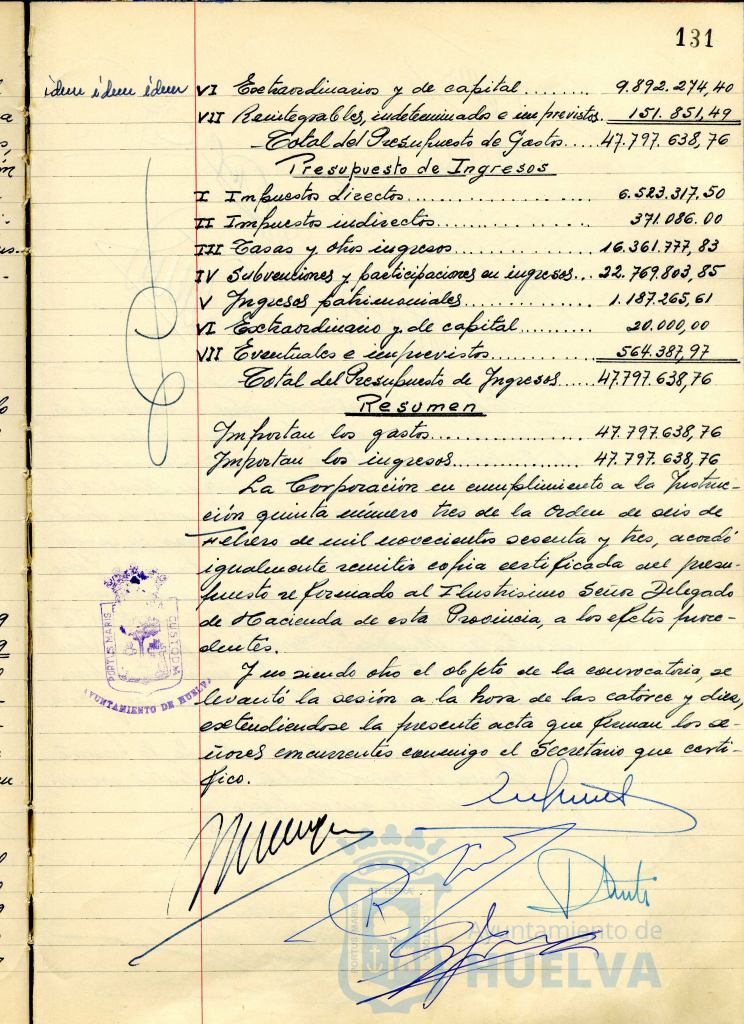 131
ídem ídem ídem VI Extraordinarios y de capital ........ 9.892.274,40
VII Reintegrables, indeterminados e imprevistos. 151.851,49
Total del Presupuesto de Gastos..... 47.797.638,76
Presupuesto de Ingresos
I Impuestos directos.................... 6.523.317.50
II Impuestos indirectos................ 371.086.00
III Tasas y otros ingresos.............. 16.361.777,83
IV Subvenciones y participaciones en ingresos... 22.769.803,85
V Ingresos patrimoniales............. 1.187.265,61
VI Extraordinario y de capital......... 20.000,00
VII Eventuales e imprevistos............ 564.387,97
Total del Presupuesto de Ingresos..... 47.797.638,76
Resumen
Importan los gastos................ 47.797.638,76
Importan los ingresos............. 47.797.638,76
La Corporación en cumplimiento a la Instruc-
ción quinta número tres de la Orden de seis de
Febrero de mil novecientos sesenta y tres, acordó
igualmente remitir copia certificada del presu-
puesto reformado al Ilustrisimo Señor Delegado
de Hacienda de esta Provincia, a los efectos proce-
dentes.
Y no siendo otro el objeto de la convocatoria, se
levantó la sesión a la hora de las catorce y diez,
extendiendose la presente acta que firman los se-
ñores concurrentes conmigo el Secretario que certi-
fico.
PORTUS MARIS
CUSTODIA
AYUNTAMIENTO DE HUELVA
Ayuntamiento de
HUELVA